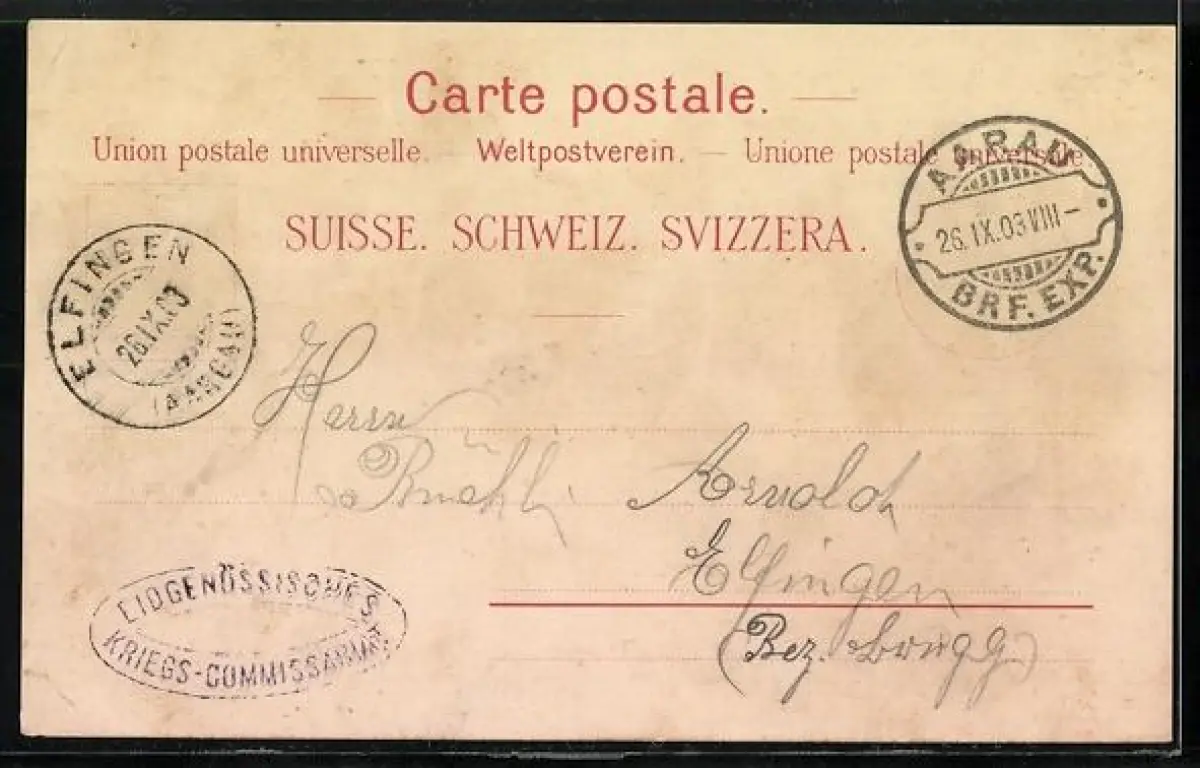 Carte postale.
Union postale universelle. — Weltpostverein. — Unione postale universale
SUISSE. SCHWEIZ. SVIZZERA.
AARAU
26.IX.03 VIII –
BRF. EXP.
ELFINGEN
26 IX.03
(AARGAU)
Herrn
Arnold
Elfingen
(Bez. Brugg)
EIDGENÖSSISCHES
KRIEGS-COMMISSARIAT